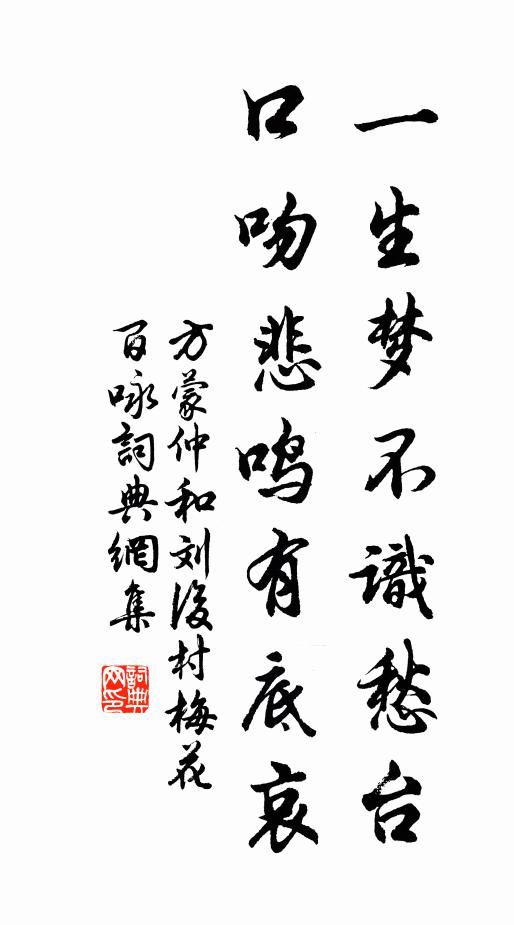 一生梦不識愁台
口吻悲鸣有底哀
方蒙仲和刘後村梅花
百咏詞典網集
詞典網印